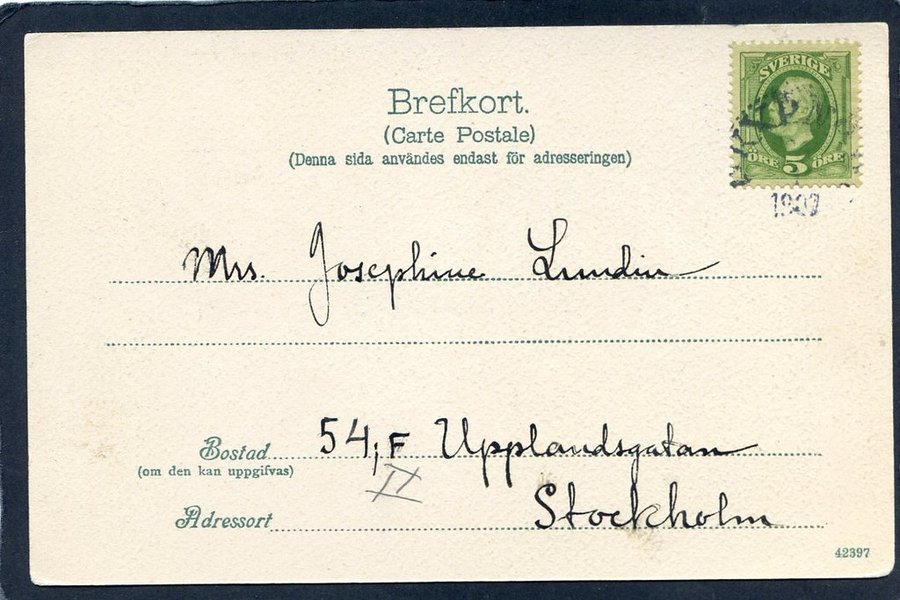 Brefkort.
(Carte Postale)
(Denna sida användes endast för adresseringen)
SVERIGE
ÖRE 5 ÖRE
1907
Mrs. Josephine Lundin
Bostad 54, F Upplandsgatan
(om den kan uppgifvas)
II
Adressort Stockholm
42397